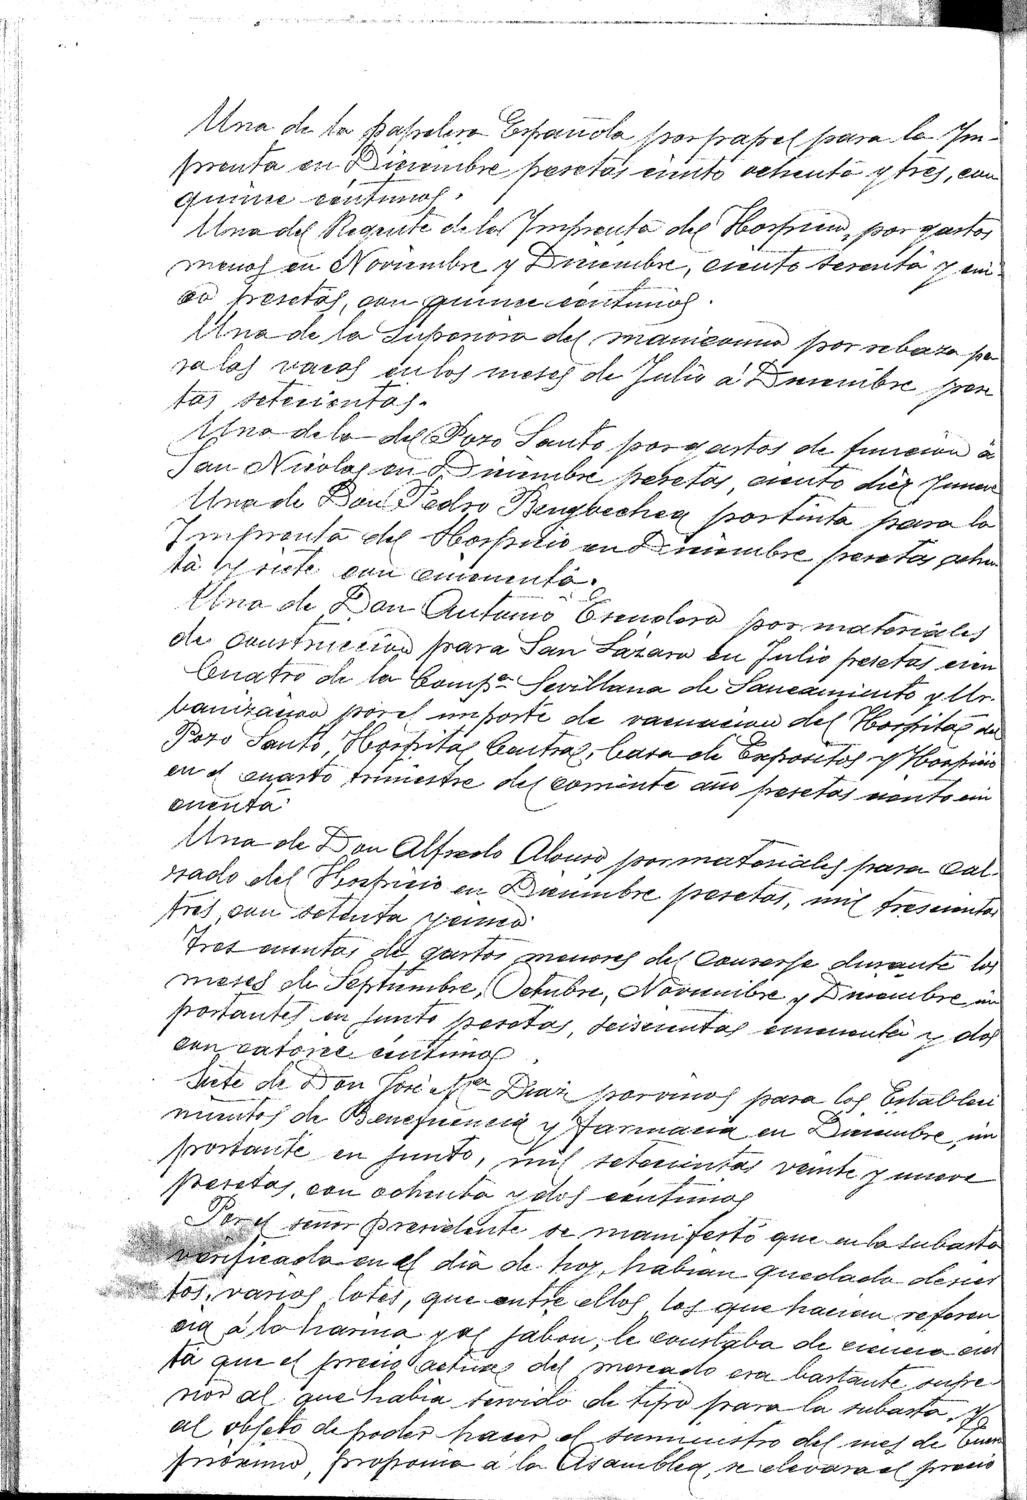 Una de la papelera Española por papel para la Im-
prenta en Diciembre pesetas ciento ochenta y tres, con
quince céntimos.
Una del Regente de la Imprenta del Hospicio, por gastos
menos en Noviembre y Diciembre, ciento sesenta y cin-
co pesetas, con quince céntimos.
Una de la Superiora del manicomio por rebaza pa
ra las vacas en los meses de Julio á Diciembre pese
tas setecientas.
Una de la del Pozo Santo por gastos de funcion á
San Nicolas en Diciembre pesetas, ciento diez y nueve
Una de Don Pedro Bengoechea por tinta para la
Imprenta del Hospicio en Diciembre pesetas ochen
ta y siete con cincuenta.
Una de Don Antonio Escudero por materiales
de construccion para San Lázaro en Julio pesetas cien
Cuatro de la Compª Sevillana de Saneamiento y Ur-
banizacion por el importe de vacunacion del Hospital del
Pozo Santo, Hospital Central, Casa de Expositos y Hospicio
en el cuarto trimestre del corriente año pesetas ciento cin
cuenta
Una de Don Alfredo Alonso por materiales para cal-
zado del Hospicio en Diciembre pesetas, mil trescientas
tres, con setenta y cinco
Tres cuentas de gastos menores del Conserje durante los
meses de Septiembre, Octubre, Noviembre y Diciembre im
portantes en junto pesetas, seiscientas cincuenta y dos
con catorce céntimos.
Siete de Don José Mª Diaz por vinos para los Estableci
mientos de Beneficencia y farmacia en Diciembre, im
portante en junto, mil setecientas veinte y nueve
pesetas, con ochenta y dos céntimos
Por el señor presidente se manifestó que en la subasta
verificada en el dia de hoy, habian quedado desier
tos, varios lotes, que entre ellos los que hacian referen
cia á la harina y al jabon, le constaba de ciencia cier
ta que el precio actual del mercado era bastante supe-
rior al que habia servido de tipo para la subasta. Y
al objeto de poder hacer el suministro del mes de Enero
próximo, proponia á la Asamblea, se elevara el precio